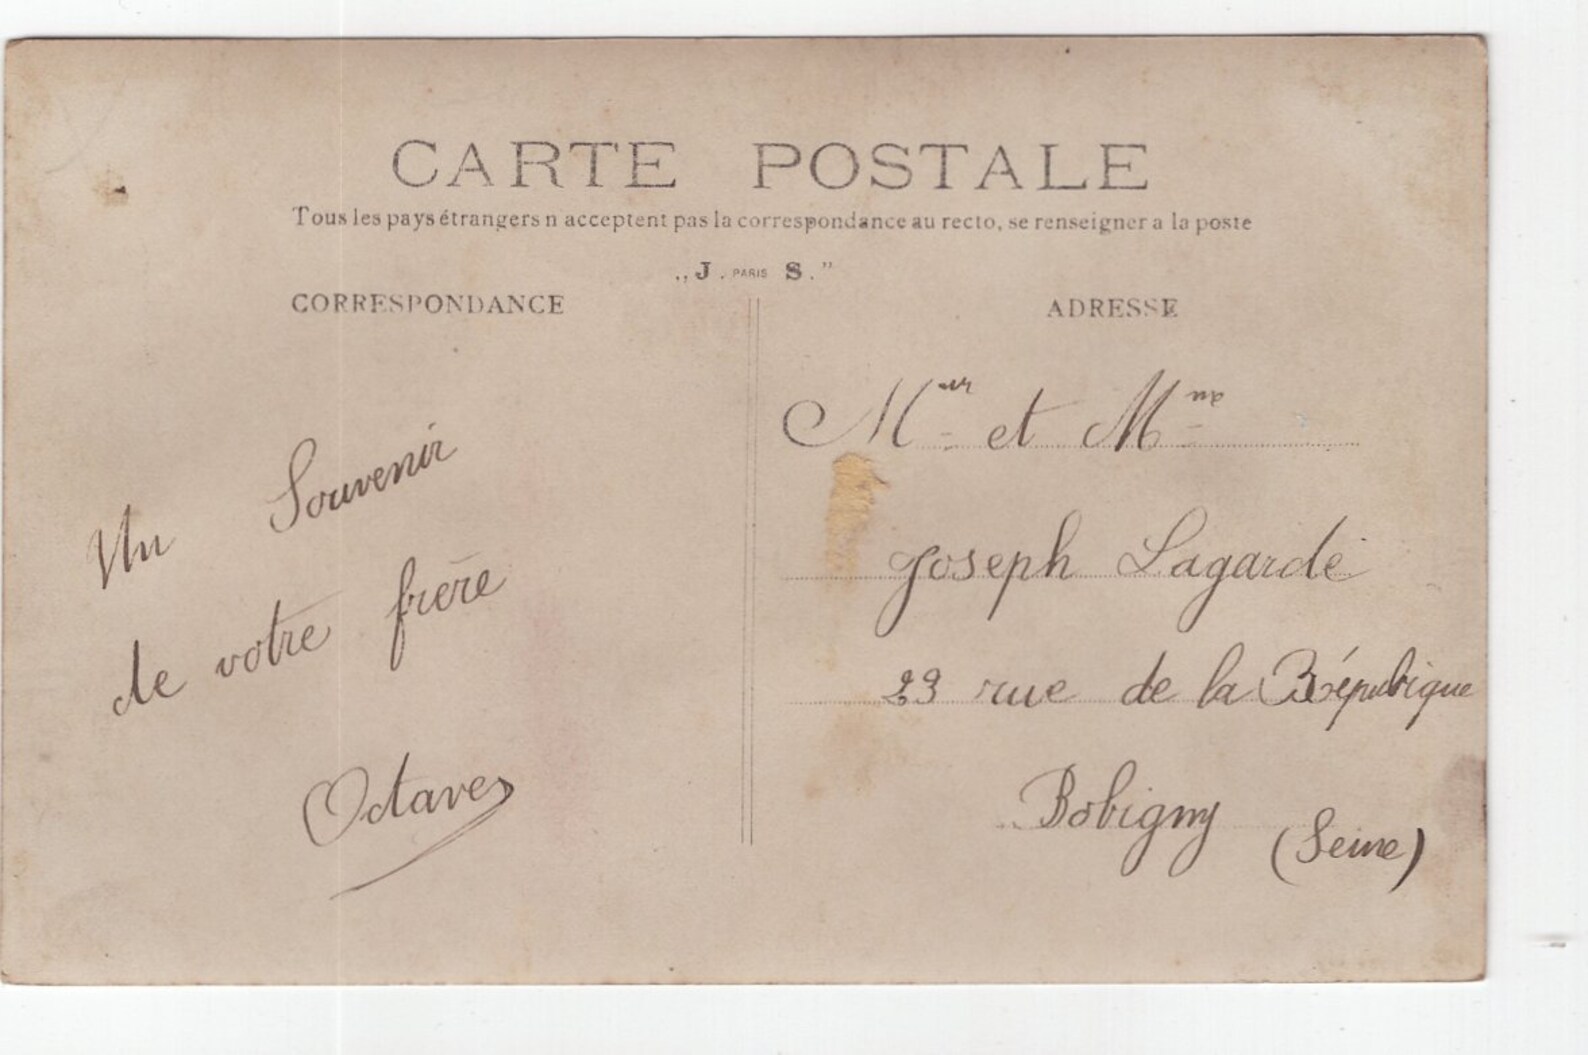 CARTE POSTALE
Tous les pays étrangers n'acceptent pas la correspondance au recto, se renseigner a la poste
„J. PARIS S.”
CORRESPONDANCE
Un Souvenir
de votre frère
Octave
ADRESSE
Meur et Mme
Joseph Lagarde
23 rue de la Répubique
Bobigny (Seine)